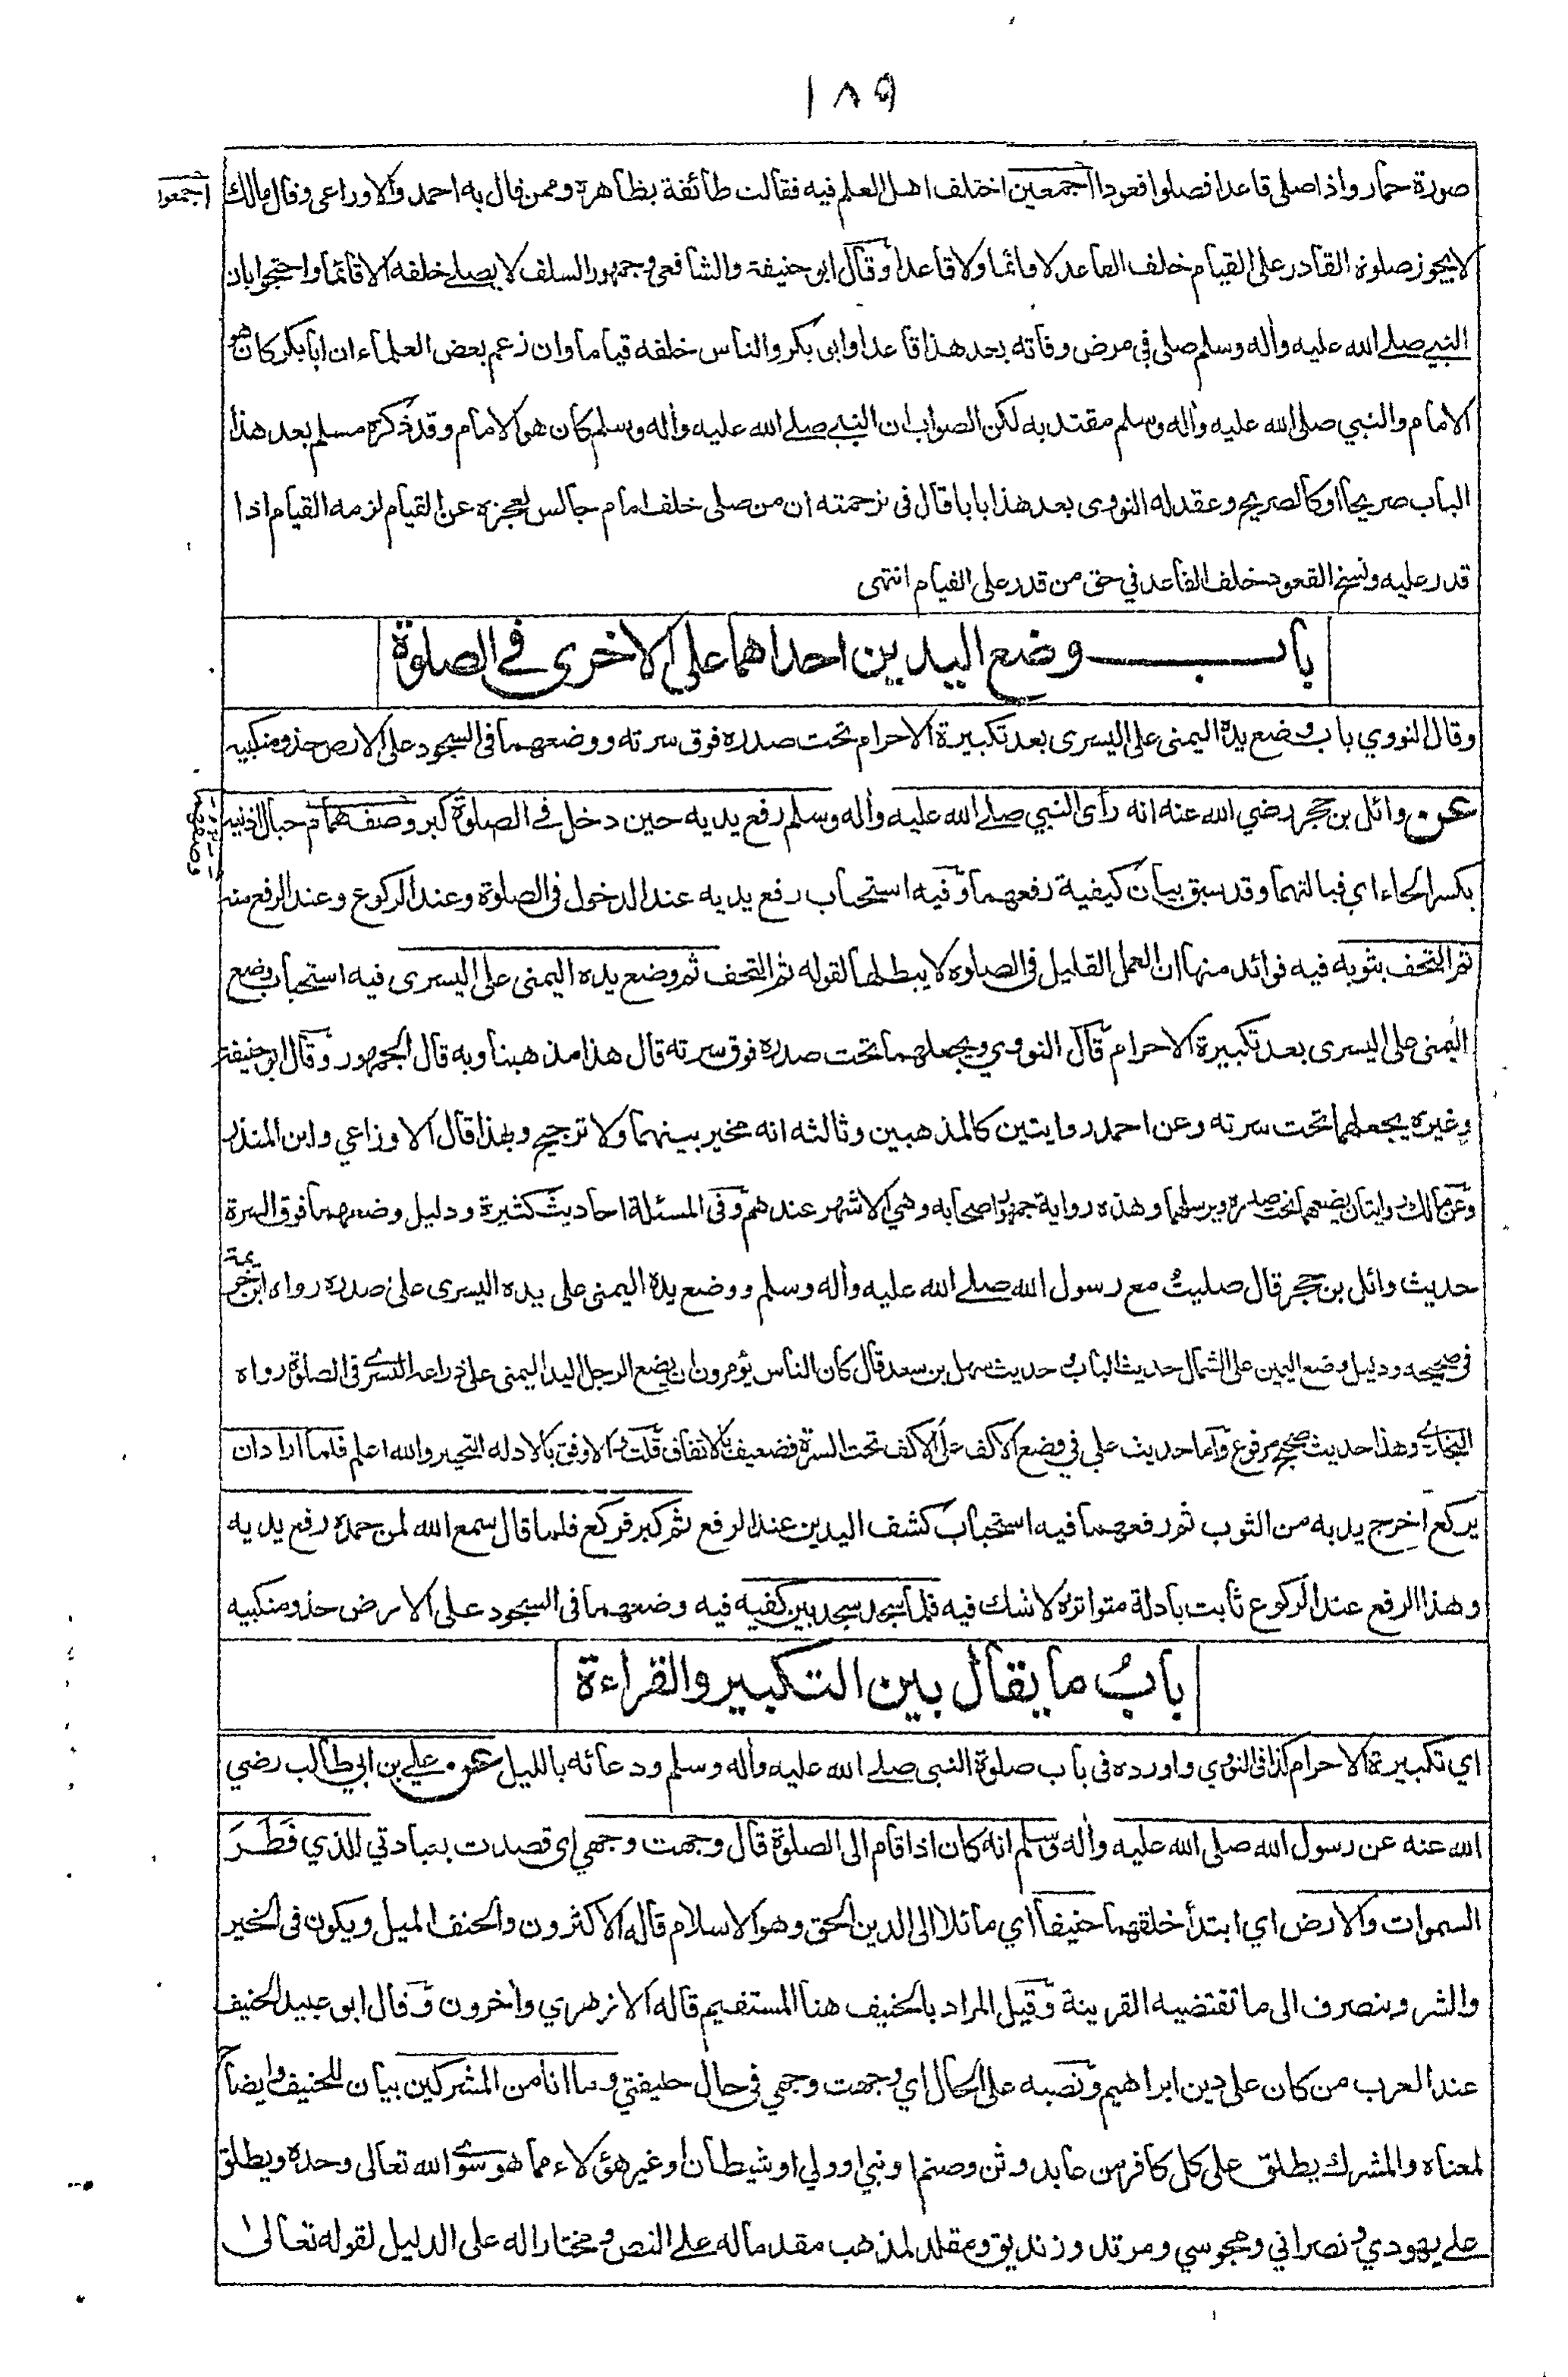 ١٨٩
صورة حمار واذا صلى قاعدا فصلوا قعودا اجمعين اختلف اهل العلم فيه فقالت طائفة بظاهره وممن قال به احمد والاوزاعى وقال مالك
اجمعوا
لا يجوز صلوة القادر على القيام خلف القاعد لا قائما ولا قاعدا وقال ابو حنيفة والشافعى وجمهور السلف لا يصلے خلفه الا قائما واحتجوا بان
النبي صلے الله عليه وأله وسلم صلى فى مرض وفاته بعد هذا قاعدا وابو بكر والناس خلفه قياما وان زعم بعض العلماء ان ابا بكر كان هو
الامام والنبي صلى الله عليه وأله وسلم مقتد به لكن الصواب ان النبي صلے الله عليه وأله وسلم كان هو الامام وقد ذكره مسلم بعد هذا
الباب صريحا او كالصريح وعقد له النووى بعد هذا بابا قال فى ترجمته ان من صلى خلف امام جالس لعجزه عن القيام لزمه القيام اذا
قدر عليه ونسخ القعود خلف القاعد في حق من قدر على القيام انتهى
باب وضع اليدين احداهما على الاخرى فے الصلوة
وقال النووي باب وضع يده اليمنى على اليسرى بعد تكبيرة الاحرام تحت صدره فوق سرته ووضعهما فى السجود على الارض حذو منكبيه
عن وائل بن حجر رضي الله عنه انه رأى النبي صلے الله عليه وأله وسلم رفع يديه حين دخل فے الصلوة كبر وصف همام حيال اذنيه
وصفهما
بكسر الحاء اي قبالتهما وقد سبق بيان كيفية رفعهما وفيه استحباب رفع يديه عند الدخول فى الصلوة وعند الركوع وعند الرفع منه
ثم التحف بثوبه فيه فوائد منها ان العمل القليل فى الصلوة لا يبطلها لقوله ثم التحف ثم وضع يده اليمنى على اليسرى فيه استحباب وضع
اليمنى على اليسرى بعد تكبيرة الاحرام قال النووي ويجعلهما تحت صدره فوق سرته قال هذا مذهبنا وبه قال الجمهور وقال ابو حنيفة
وغيره يجعلهما تحت سرته وعن احمد روايتين كالمذهبين وثالثه انه مخير بينهما ولا ترجيح وبهذا قال الاوزاعي وابن المنذر
وعن مالك روايتان يضعهما تحت صدره ويرسلهما وهذه رواية جمهور اصحابه وهي الاشهر عندهم وفى المسئلة احاديث كثيرة ودليل وضعهما فوق السرة
حديث وائل بن حجر قال صليت مع رسول الله صلے الله عليه وأله وسلم ووضع يده اليمنى على يده اليسرى على صدره رواه ابن خزيمة
فى صحيحه ودليل وضع اليمين على الشمال حديث الباب وحديث سهل بن سعد قال كان الناس يؤمرون ان يضع الرجل اليد اليمنى على ذراعه اليسرے فى الصلوة رواه
البخارے وهذا حديث صحيح مرفوع واما حديث علي في وضع الاكف على الاكف تحت السرة فضعيف بالاتفاق قلت الاوفق بالادلة التخيير والله اعلم فلما اراد ان
يركع اخرج يديه من الثوب ثم رفعهما فيه استحباب كشف اليدين عند الرفع ثم كبر فركع فلما قال سمع الله لمن حمده رفع يديه
وهذا الرفع عند الركوع ثابت بادلة متواترة لا شك فيه فلما سجد سجد بين كفيه فيه وضعهما فى السجود على الارض حذو منكبيه
باب ما يقال بين التكبير والقراءة
اي تكبيرة الاحرام كذا فى النووي واورده فى باب صلوة النبى صلے الله عليه وأله وسلم ودعائه بالليل عن علے بن ابي طالب رضي
الله عنه عن رسول الله صلى الله عليه وأله وسلم انه كان اذا قام الى الصلوة قال وجهت وجهي اى قصدت بعبادتي للذي فَطَرَ
السموات والارض اي ابتدأ خلقهما حنيفا اي مائلا الى الدين الحق وهو الاسلام قاله الاكثرون والحنف الميل ويكون فى الخير
والشر وينصرف الى ما تقتضيه القرينة وقيل المراد بالحنيف هنا المستقيم قاله الازهري وأخرون وقال ابو عبيد الحنيف
عند العرب من كان على دين ابراهيم ونصبه على الحال اي وجهت وجهي فى حال حنيفتي وما انا من المشركين بيان للحنيف وايضاح
لمعناه والمشرك يطلق على كل كافر من عابد وثن وصنم او نبي او ولي او شيطان او غير هؤلاء مما هو سوے الله تعالى وحده ويطلق
علے يهودي ونصراني ومجوسي ومرتد وزنديق ومقلد لمذهب مقدما له علے النص ومختارا له على الدليل لقوله تعالى